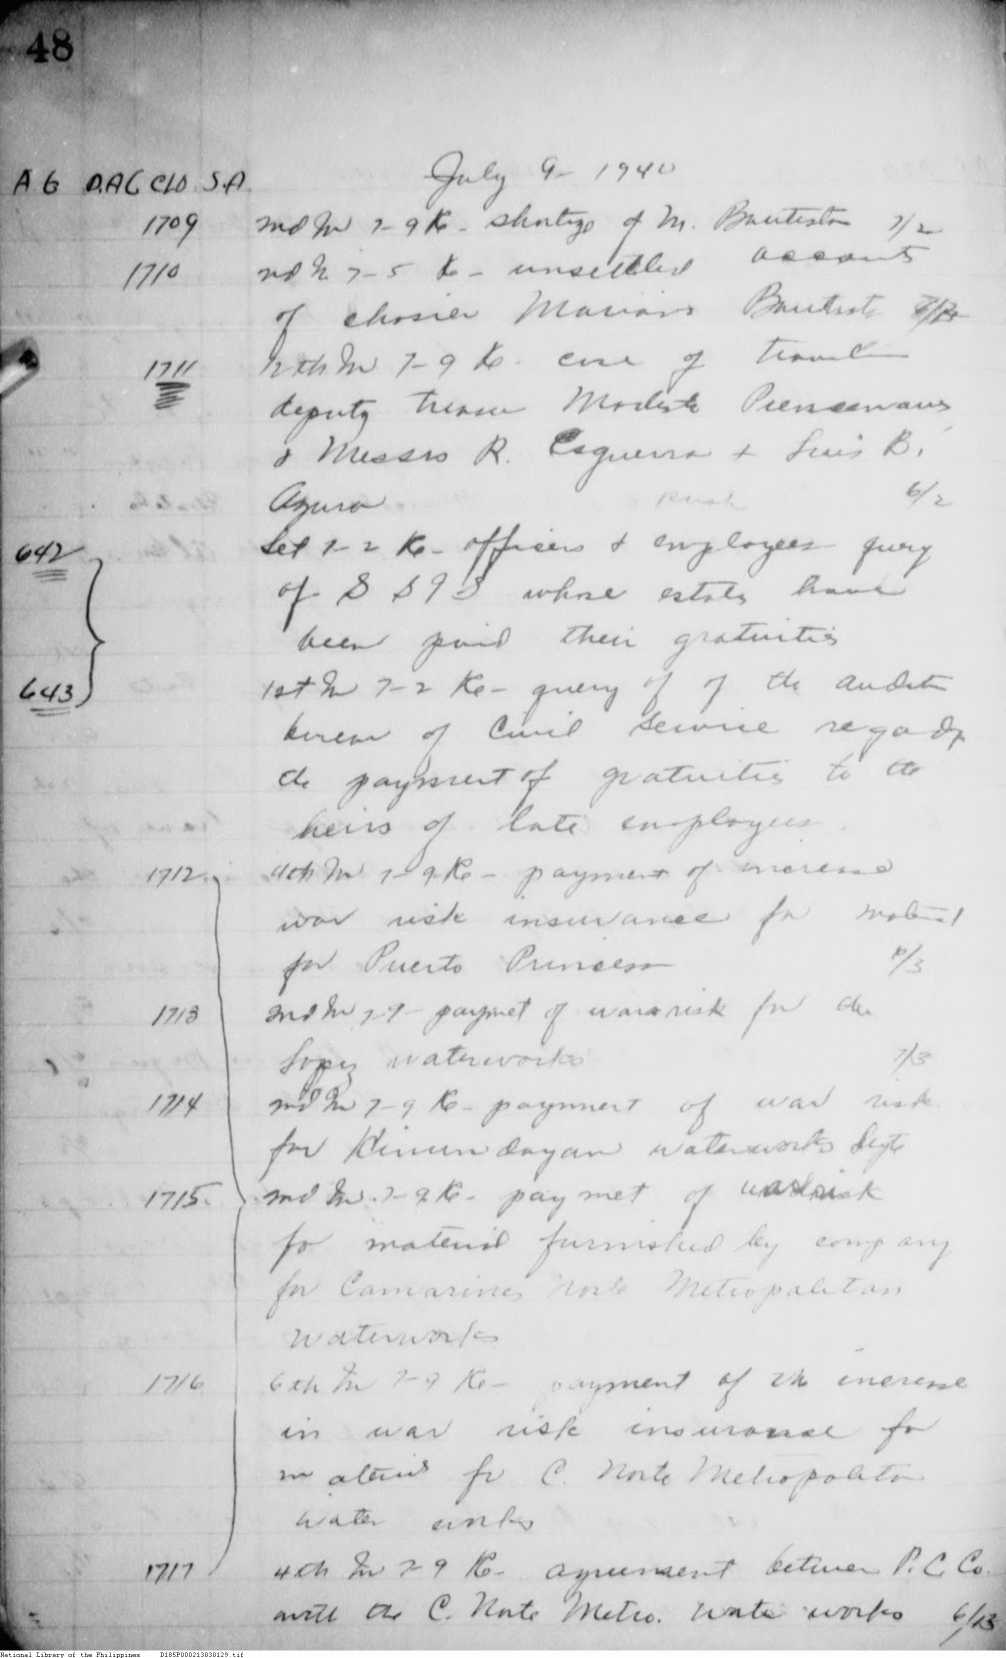 48
July 9 - 1940
A G D.A.G CLD S.A.
1709 md In 7-9 Ke - shortage of M. Bautista 7/2
1710 md In 7-5 Ke - unsettled accounts
of chasier Mariano Bautista
1711 12th In 7-9 Ke - case of
deputy Modesto
& Messrs R. Esguerra + Luis B.
Azura 6/2
642 Let 7-2 Ke - officers & employees query
of whose estate have
been paid their gratuities
643 1st In 7-2 Ke - query of of the auditor
bureau of Civil Service
the payment of gratuities to the
heirs of late employees.
1712 4th In 7-9 Ke - payment of increase
war risk insurance for material
for Puerto Princesa /3
1713 md In 7-9 - paymet of war risk for the
Lopez waterworks 7/3
1714 md In 7-9 Ke - payment of war risk
for Hinundayan waterworks Leyte
1715 md In 7-9 Ke - paymet of war risk
for material furnished by company
for Camarines Norte Metropolitan
waterworks
1716 6th In 7-9 Ke - payment of the increase
in war risk insurance for
material for C. Norte Metropolitan
water works
1717 4th In 7-9 Ke - agreement between P.C. Co.
with the C. Norte Metro. water works 6/13
National Library of the Philippines D185P000213838129.tif